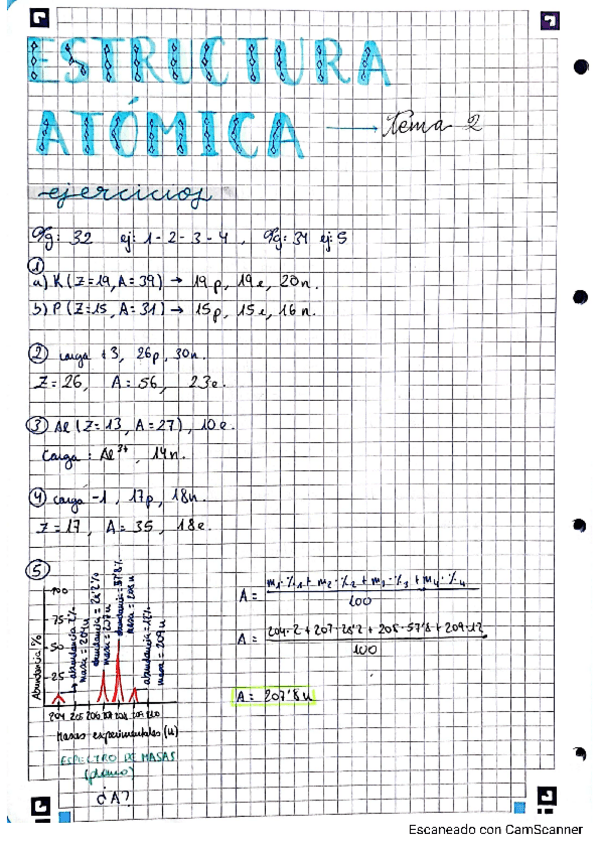 ESTRUCTURA
ATÓMICA → Tema 2
ejercicios
Pg: 32 ej: 1-2-3-4, Pg: 34 ej: 5
①
a) K (Z=19, A=39) → 19p, 19e, 20n.
b) P (Z=15, A=31) → 15p, 15e, 16n.
② carga +3, 26p, 30n.
Z=26, A=56, 23e.
③ Al (Z=13, A=27), 10e.
Carga: Al³⁺, 14n.
④ carga -1, 17p, 18n.
Z=17, A=35, 18e.
⑤
Abundancia %
100
75
50
25
abundancia = 2%
masa = 204u
abundancia = 28'2%
masa = 207u
abundancia = 57'8%
masa = 208u
abundancia = 12%
masa = 209u
204 205 206 207 208 209 210
Masas experimentales (u)
ESPECTRO DE MASAS
(plomo)
¿A?
A = m₁·%₁ + m₂·%₂ + m₃·%₃ + m₄·%₄
100
A = 204·2 + 207·28'2 + 208·57'8 + 209·12
100
A = 207'8u
Escaneado con CamScanner